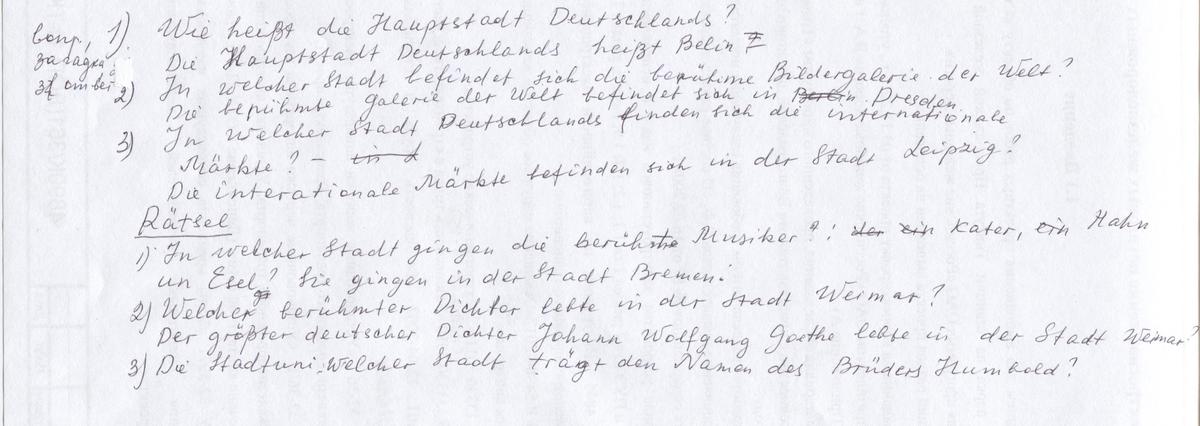 вопр, 1) Wie heißt die Hauptstadt Deutschlands?
загадка Die Hauptstadt Deutschlands heißt Belin
2) In welcher Stadt befindet sich die berühme Bildergalerie der Welt?
Die berühmte galerie der Welt befindet sich in Berlin Dresden.
3) In welcher Stadt Deutschlands finden sich die internationale
Märkte? – in d
Die interationale Märkte befinden sich in der Stadt Leipzig?
Rätsel
1) In welcher Stadt gingen die berühmte Musiker?: der ein Kater, ein Hahn
un Esel? Sie gingen in der Stadt Bremen.
2) Welcher berühmter Dichter lebte in der Stadt Weimar?
Der größter deutscher Dichter Johann Wolfgang Goethe lebte in der Stadt Weimar?
3) Die Stadtuni welcher Stadt trägt den Namen des Brüders Humbold?